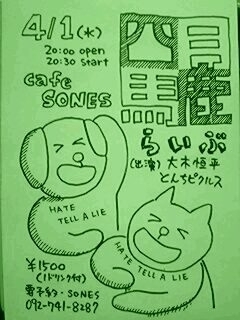 4/1(水)
20:00 open
20:30 start
cafe
SONES
四月馬鹿
らいぶ
(出演) 大木恒平
とんちピクルス
HATE
TELL A LIE
HATE
TELL A LIE
¥1500
(1ドリンク付)
電予約・SONES
092-741-8287